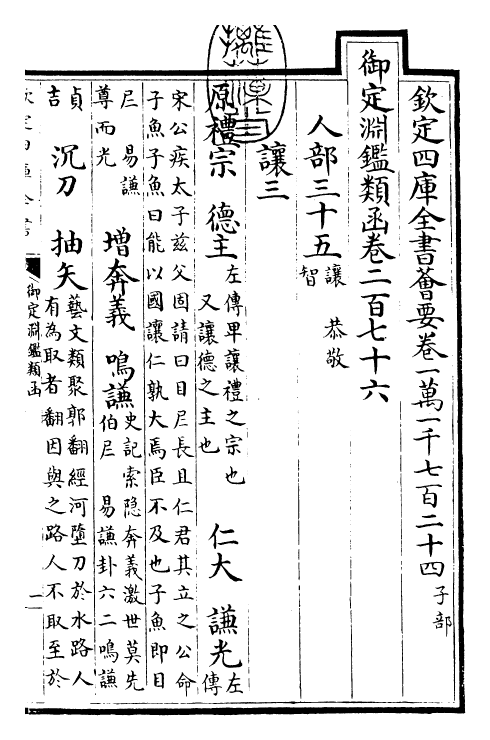 欽定四庫全書薈要卷一萬一千七百二十四 子部
御定淵鑑類函卷二百七十六
人部三十五 讓 恭敬
智
讓三
原禮宗 德主 左傳卑讓禮之宗也
又讓德之主也
仁大 謙光 左
傳
宋公疾太子兹父固請曰目𡰥長且仁君其立之公命
子魚子魚曰能以國讓仁孰大焉臣不及也子魚即目
𡰥 易謙
尊而光
增奔義 鳴謙 史記索隐奔義激世莫先
伯𡰥 易謙卦六二鳴謙
貞
吉
沉刀 抽矢 藝文類聚郭翻經河墮刀於水路人
有為取者翻因與之路人不取至於
御定淵鑑類函
一